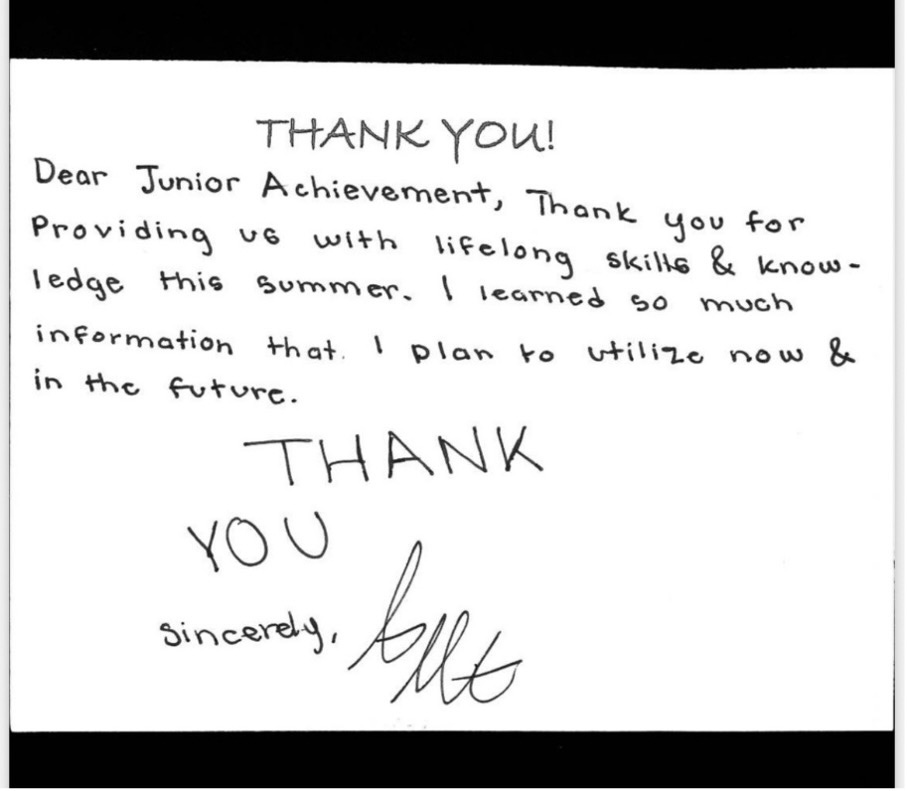 THANK YOU!
Dear Junior Achievement, Thank you for
Providing us with lifelong skills & know-
ledge this summer. I learned so much
information that I plan to utilize now &
in the future.
THANK
YOU
sincerely,